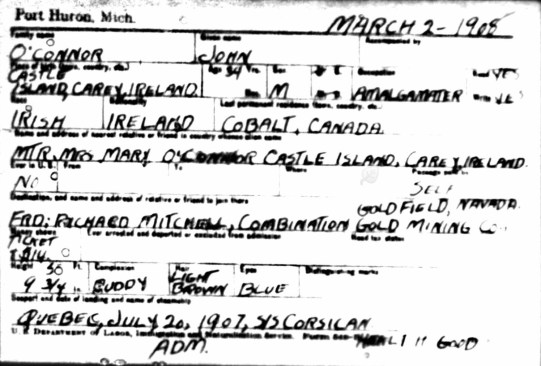 Port Huron, Mich. MARCH 2-1908
Family name Given name Accompanied by
O'CONNOR JOHN
Age 34 Yrs. Sex Occupation Read YES
CASTLE
ISLAND, CAREY, IRELAND. M AMALGAMATER Write YES
Race Nationality Last permanent residence (town, country, etc.)
IRISH IRELAND COBALT, CANADA.
Name and address of nearest relative or friend in country whence alien came
MTR, MRS MARY O'CONNOR CASTLE ISLAND, CAREY, IRELAND.
Ever in U.S. From To Where Passage paid by
NO SELF
Destination, and name and address of relative or friend to join there GOLDFIELD, NAVADA.
FRD: RICHARD MITCHELL, COMBINATION GOLD MINING CO.
Money shown Ever arrested and deported or excluded from admission Head tax status
TICKET
Height Ft. Complexion Hair Eyes Distinguishing marks
9 3/4 in. RUDDY LIGHT BROWN BLUE
Seaport and date of landing and name of steamship
QUEBEC, JULY 20, 1907, S/S CORSICAN
U. S. Department of Labor, Immigration and Naturalization Service.
ADM. GOOD